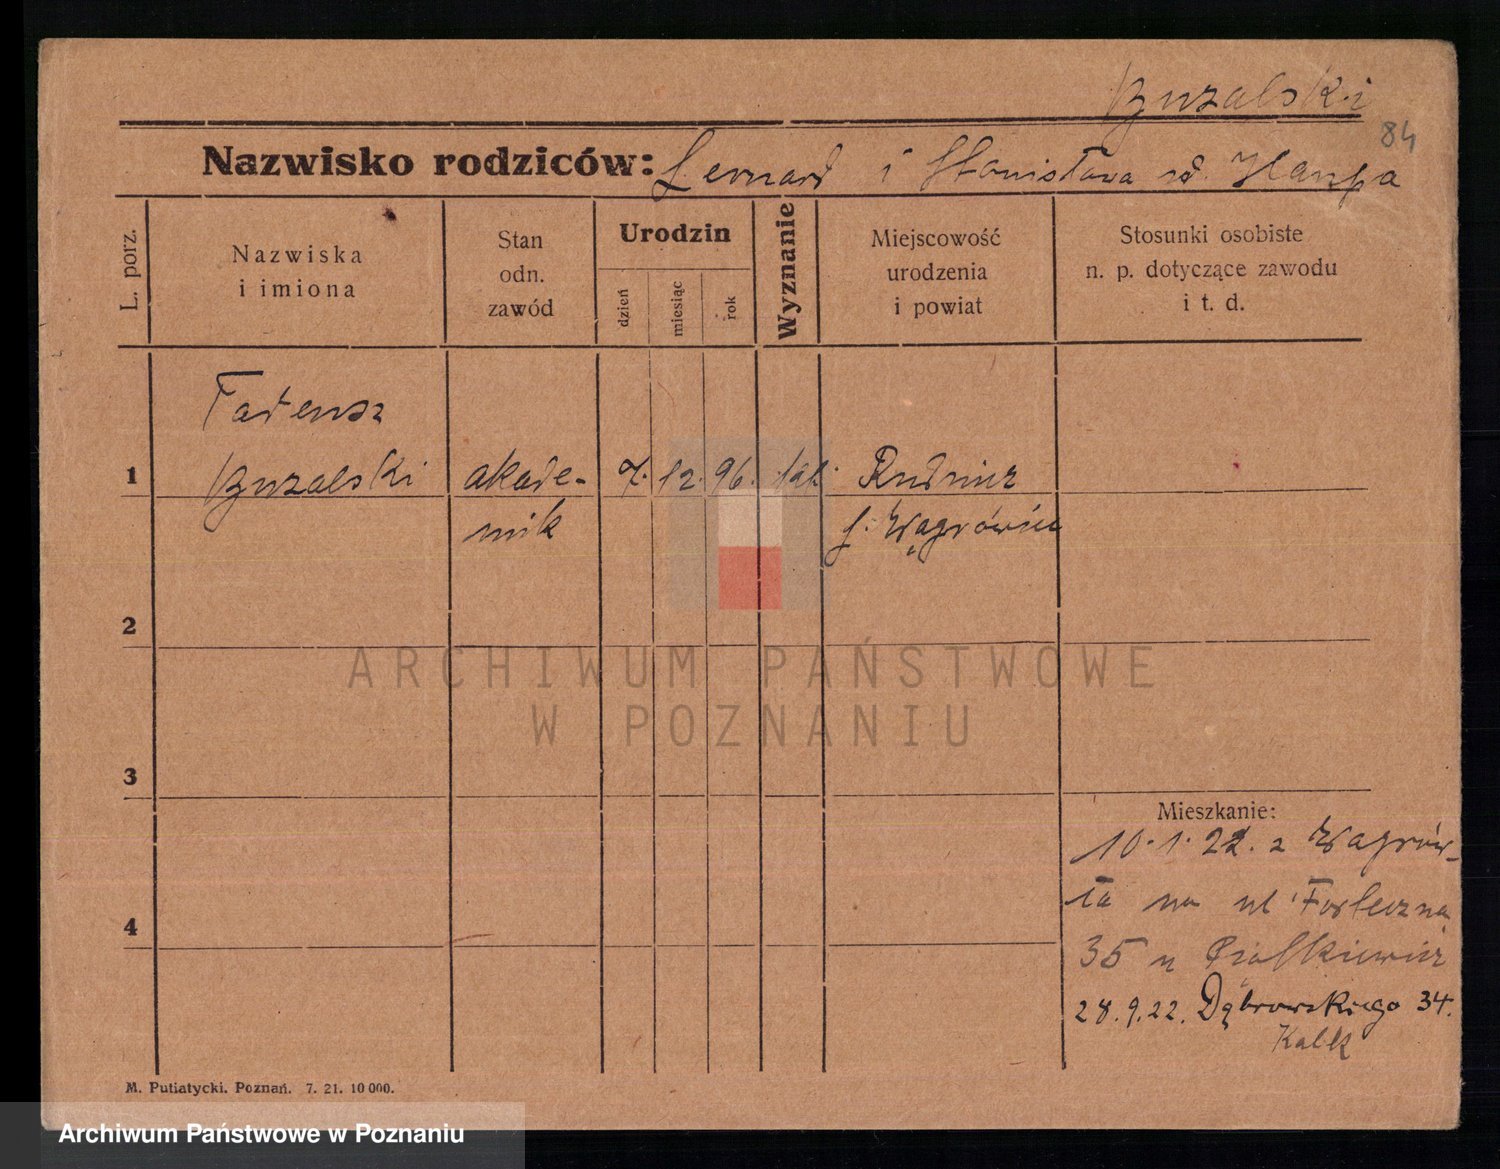 Buzalski
84
Nazwisko rodziców: Lernard i Stanisława
L. porz.
Nazwiska
i imiona
Stan
odn.
zawód
Urodzin
dzień
miesiąc
rok
Wyznanie
Miejscowość
urodzenia
i powiat
Stosunki osobiste
n. p. dotyczące zawodu
i t. d.
Tadeusz
1 Buzalski akade- 7. 12. 96. kat. Rudnicz
mik Wągrówiec
2
ARCHIWUM PAŃSTWOWE
W POZNANIU
3
Mieszkanie:
10.1.22. z Wągrów-
4 na ul Forteczna
35 u
28.9.22. Dąbrowskiego 34.
Kalk
M. Putiatycki. Poznań. 7. 21. 10 000.
Archiwum Państwowe w Poznaniu